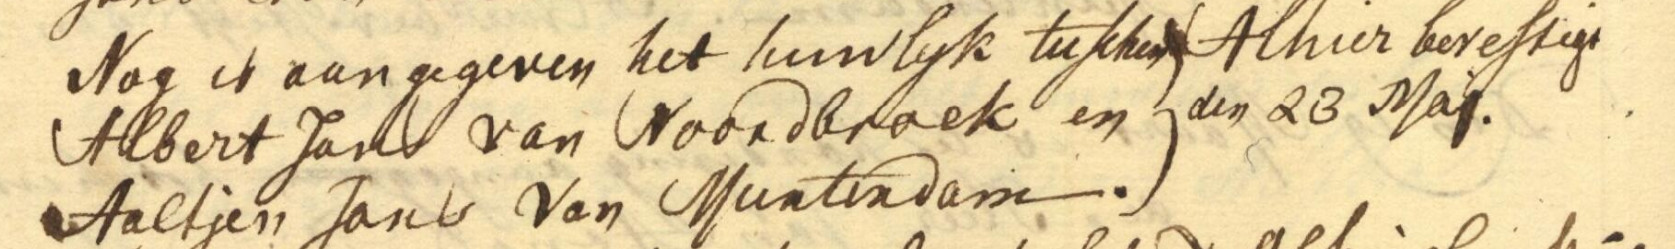 Nog is aangegeven het huwlyk tusschen
Albert Jans van Noordbroek en
Aaltjen Jans van Muntendam.
Alhier bevestigt
den 23 Maj.